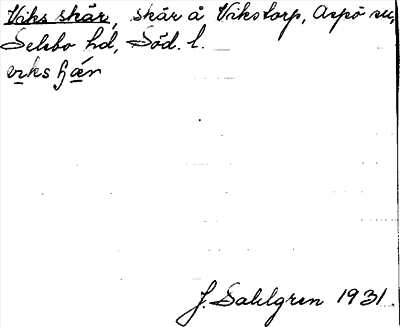 Viks skär, skär å Vikstorp, Aspö sn,
Selebo hd, Söd. l.
viks ɧær
J. Sahlgren 1931.